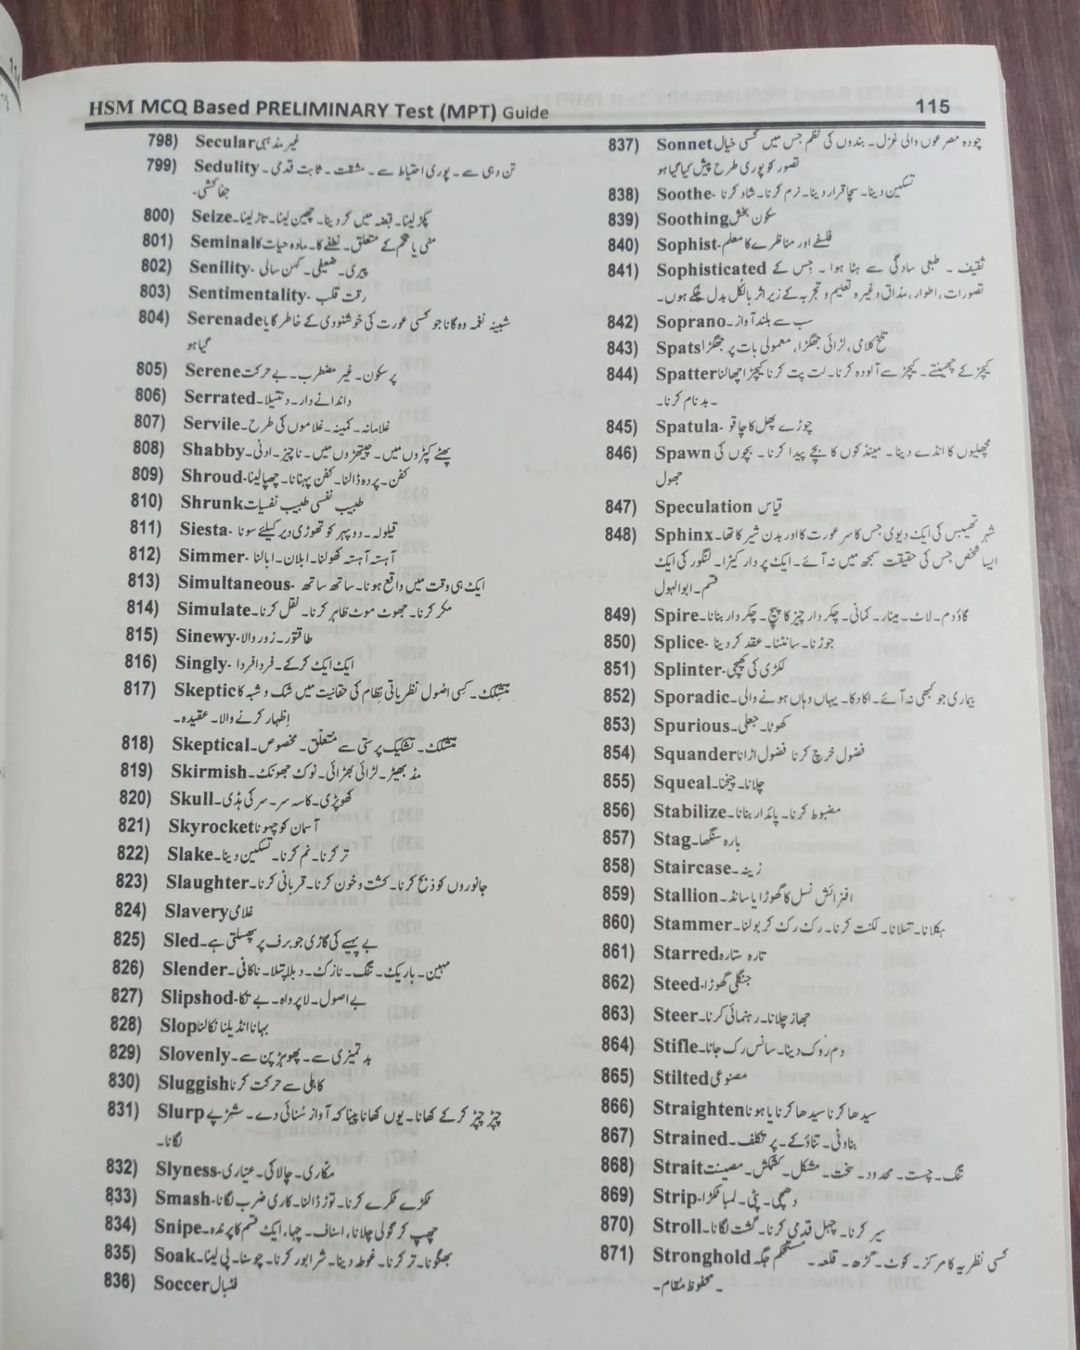 HSM MCQ Based PRELIMINARY Test (MPT) Guide
115
798) Secular غیر مذہبی
799) Sedulity- تن دہی سے۔ پوری احتیاط سے۔ مشقت۔ ثابت قدمی۔
جفاکشی۔
800) Seize- پکڑ لینا۔ قبضہ میں کر دینا۔ چھین لینا۔ تاڑ لینا۔
801) Seminal منی یا تخم کے متعلق۔ نطفے کا۔ مادہ حیات کا
802) Senility- پیری۔ ضعیفی۔ کہن سالی
803) Sentimentality- رقت قلب
804) Serenade شبینہ نغمہ وہ گانا جو کسی عورت کی خوشنودی کے خاطر گایا
گیا ہو
805) Serene پر سکون۔ غیر مضطرب۔ بے حرکت
806) Serrated- دندانے دار۔ دنتیلا
807) Servile- غلامانہ۔ کمینہ۔ غلاموں کی طرح
808) Shabby- پھٹے کپڑوں میں۔ چیتھڑوں میں۔ ناچیز۔ ادنی
809) Shroud- کفن۔ پردہ ڈالنا۔ کفن پہنانا۔ چھپا لینا
810) Shrunk طبیب نفسی طبیب نفسیات
811) Siesta- قیلولہ۔ دوپہر کو تھوڑی دیر کیلئے سونا
812) Simmer- آہستہ آہستہ کھولنا۔ ابلان۔ ابالنا
813) Simultaneous- ایک ہی وقت میں واقع ہونا۔ ساتھ ساتھ
814) Simulate- مکر کرنا۔ جھوٹ موٹ ظاہر کرنا۔ نقل کرنا
815) Sinewy- طاقتور۔ زور والا
816) Singly- ایک ایک کرکے۔ فردا فردا
817) Skeptic متشکک۔ کسی اصُول نظریاتی نظام کی حقانیت میں شک و شبہ کا
اظہار کرنے والا۔ عقیدہ۔
818) Skeptical- متشکک۔ تشکیک پرستی سے متعلّق۔ مخصوص
819) Skirmish- مڈبھیڑ۔ لڑائی بھڑائی۔ نوک جھونک
820) Skull- کھوپڑی۔ کاسہ سر۔ سر کی ہڈی
821) Skyrocket آسمان کو چھونا
822) Slake- تر کرنا۔ نم کرنا۔ تسکین دینا
823) Slaughter- جانوروں کو ذبح کرنا۔ کشت و خون کرنا۔ قربانی کرنا
824) Slavery غلامی
825) Sled- بے پہیے کی گاڑی جو برف پر پھسلتی ہے
826) Slender- مہین۔ باریک۔ تنگ۔ نازک۔ دبلا پتلا۔ ناکافی
827) Slipshod- بے اصول۔ لاپرواہ۔ بے تکا
828) Slop بہانا انڈیلنا نکالنا
829) Slovenly- بدتمیزی سے۔ پھوہڑپن سے
830) Sluggish کاہلی سے حرکت کرنا
831) Slurp چپڑ چپڑ کرکے کھانا۔ یوں کھانا پینا کہ آواز سُنائی دے۔ شڑپے
لگانا۔
832) Slyness- مکّاری۔ چالاکی۔ عیّاری
833) Smash- ٹکڑے ٹکڑے کرنا۔ توڑ ڈالنا۔ کاری ضرب لگانا
834) Snipe- چھپ کر گولی چلانا، اسناف۔ چہا، ایک قسم کا پرندہ
835) Soak- بھگونا۔ تر کرنا۔ غوطہ دینا۔ شرابور کرنا۔ چوسنا۔ پی لینا
836) Soccer فٹبال
837) Sonnet چودہ مصرعوں والی غزل۔ بندوں کی نظم جس میں کسی خیال
تصور کو پوری طرح پیش کیا گیا ہو
838) Soothe- تسکین دینا۔ سچا قرار دینا۔ نرم کرنا۔ شاد کرنا
839) Soothing سکون بخش
840) Sophist- فلسفے اور مناظرے کا معلم
841) Sophisticated ثقیف۔ طبعی سادگی سے ہٹا ہوا۔ جس کے
تصورات، اطوار، مذاق وغیرہ تعلیم و تجربہ کے زیر اثر بالکل بدل چکے ہوں۔
842) Soprano- سب سے بلند آواز
843) Spats تلخ کلامی، لڑائی جھگڑا، معمولی بات پر جھگڑا
844) Spatter کیچڑ کے چھینٹے۔ کیچڑ سے آلودہ کرنا۔ لت پت کرنا کیچڑ اچھالنا
۔ بدنام کرنا۔
845) Spatula- چوڑے پھل کا چاقو
846) Spawn مچھلیوں کا انڈے دینا۔ مینڈکوں کا بچے پیدا کرنا۔ بچوں کی
جھول
847) Speculation قیاس
848) Sphinx- شہر تھیبس کی ایک دیوی جس کا سر عورت کا اور بدن شیر کا تھا۔
ایسا شخص جس کی حقیقت سمجھ میں نہ آئے۔ ایک پردار کیڑا۔ لنگور کی ایک
قسم۔ ابوالہول
849) Spire- گاؤدم۔ لاٹ۔ مینار۔ کمانی۔ چکردار چیز کا پیچ۔ چکردار بنانا
850) Splice- جوڑنا۔ سانٹنا۔ عقد کر دینا
851) Splinter- لکڑی کی کھپچی
852) Sporadic- بیماری جو کبھی نہ آئے۔ اکا دکا۔ یہاں وہاں ہونے والی
853) Spurious- کھوٹا۔ جعلی
854) Squander فضول خرچ کرنا فضول اڑانا
855) Squeal- چلانا۔ چیخنا
856) Stabilize- مضبوط کرنا۔ پائدار بنانا
857) Stag- بارہ سنگھا
858) Staircase- زینہ
859) Stallion- افزائش نسل کا گھوڑا یا سانڈ
860) Stammer- ہکلانا۔ تتلانا۔ لکنت کرنا۔ رک رک کر بولنا
861) Starred تارہ ستارہ
862) Steed- جنگلی گھوڑا
863) Steer- جہاز چلانا۔ رہنمائی کرنا
864) Stifle- دم روک دینا۔ سانس رک جانا
865) Stilted مصنوعی
866) Straighten سیدھا کرنا سیدھا کرنا یا ہونا
867) Strained- بناوٹی۔ تناؤ کے۔ پر تکلف
868) Strait تنگ۔ چست۔ محدود۔ سخت۔ مشکل۔ کشمکش۔ مصیبت
869) Strip- دھجی۔ پٹی۔ لمبا ٹکڑا
870) Stroll- سیر کرنا۔ چہل قدمی کرنا۔ گشت لگانا
871) Stronghold کسی نظریہ کا مرکز۔ کوٹ۔ گڑھ۔ قلعہ۔ مستحکم جگہ
۔ محفوظ مقام۔